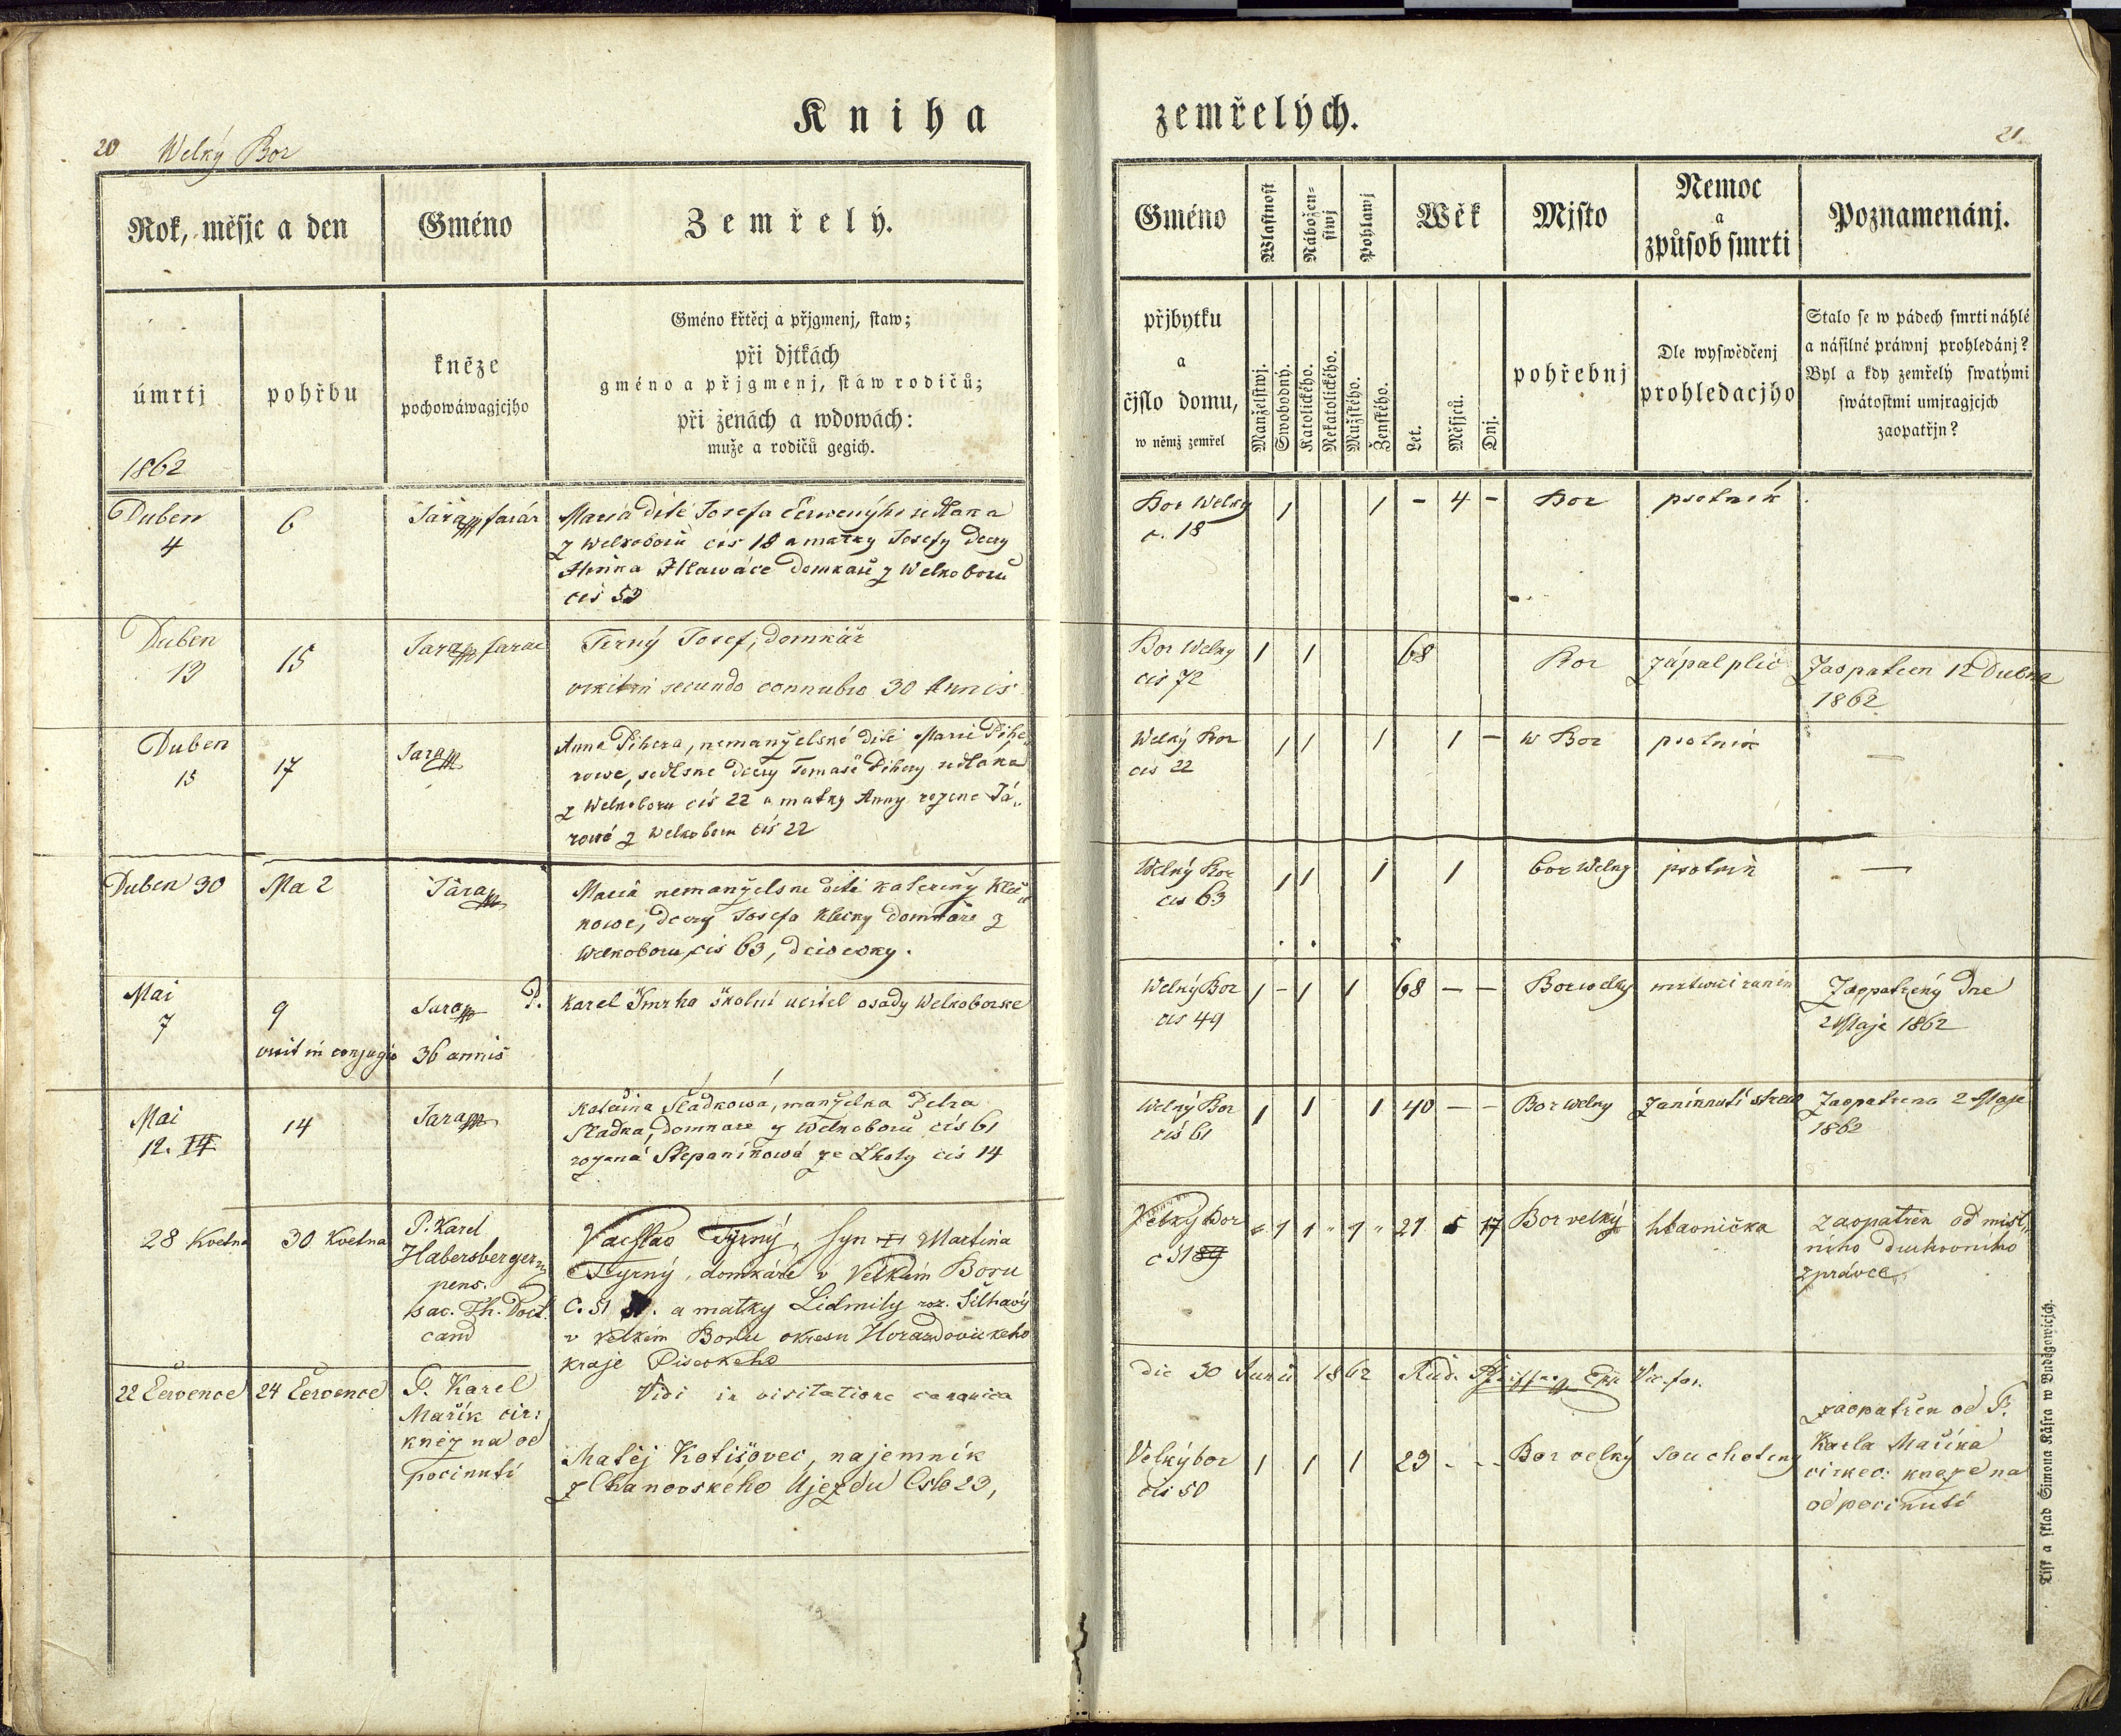 Kniha
zemřelých.
20 Welký Bor
21
Rok, měsjc a den
Gméno
Zemřelý.
úmrtj
pohřbu
kněze
pochowáwagjcjho
Gméno křtěcj a přjgmenj, staw;
při djtkách
gméno a přjgmenj, staw rodičů;
při ženách a wdowách:
muže a rodičů gegich.
1862
Gméno
Wlastnost
Nábožen-
stwj
Pohlawj
Wěk
Mjsto
Nemoc
a
způsob smrti
Poznamenánj.
přjbytku
a
čjslo domu,
w němž zemřel
Manželstwj.
Swobodný.
Katolického.
Nekatolického.
Mužského.
Ženského.
Let.
Měsjců.
Dnj.
pohřebnj
Dle wyswědčenj
prohledacjho
Stalo se w pádech smrti náhlé
a násilné práwnj prohledánj?
Byl a kdy zemřelý swatými
swátostmi umjragjcjch
zaopatřjn?
Duben
4
6
Jára farár
Maria dite Josefa Červenýho sedlaka
z Welkoboru čis 18 a matky Josefy dcery
Hlawáče domkaře z Welkoboru
čis 53
Bor Welky
č. 18
1 1 - 4 -
Bor
psotnik
Duben
13
15
Jara farar
Terný Josef, domkář
vixit in secundo connubio 30 Annis
Bor Welky
čis 72
1 1 68
Bor
zápal plic
Zaopatren 12 Dubna
1862
Duben
15
17
Jara
Anna Pihera, nemanželské dite Marie Pihe
rowe, sedlske dcery Tomaše Pihery sedlaka
z Welkoboru čis 22 a matky Anny rozene Já
rowé z Welkoboru čis 22
Welký Bor
čis 22
1 1 1 1 -
w Bor
psotnik
—
Duben 30
Ma 2
Jára
Maria nemanželske dite kateriny Kleč
kowe, dcery Josefa Klecky domkáře z
Welkoboru čis 63, děwečky.
Welký Bor
čis 63
1 1 1 1
bor Welky
psotnik
—
Mai
7
9
Jara
P.
Karel Šmrha školní učitel osady Welkoborske
vixit in conjugio 36 annis
Welký Bor
čis 49
1 - 1 1 68 - -
Bor welky
Zaopatřený dne
2 Maje 1862
Mai
12. 14
14
Jara
Kateřina Sladkowá, manželka Petra
Sladka, domkare z Welkoboru čis 61
rozená Štepaníkowá ze Lhoty čis 14
Welký Bor
čis 61
1 1 1 40 - -
Bor welky
Zaniknutí střew
Zaopatrena 2 Maje
1862
28 Kvetna
30 Kvetna
P. Karel
Habersberger
pens.
sac. Th. Doct.
cand
Vácslav Tyrný, syn Martina
Tyrný, domkáře v Velkém Boru
C. 51 a matky Lidmily roz. Šilhavý
v velkém Boru okresu Horazdovickeho
kraje Piseckeho
Velký Bor
č 51 89
" 1 1 " 1 " 21 5 17
Bor velký
hlavnička
zaopatřen od míst
ního duchovního
zprávce
Vidi in visitatione canonica
die 30 Junii 1862 Rud. Vic. for.
22 Července
24 Července
P. Karel
Mařík cir:
kněz na od
pocinutí
Matěj Kotišovec, najemník
z Chanovského Ujezdu Čslo 23,
Velký bor
čis 50
1 1 1 23 - -
Bor velký
souchotiny
zaopatřen od P.
Karla Maříka
cirkev: kneze na
odpocinuti
Tisk a sklad Simona Kásra w Buděgowicjch.